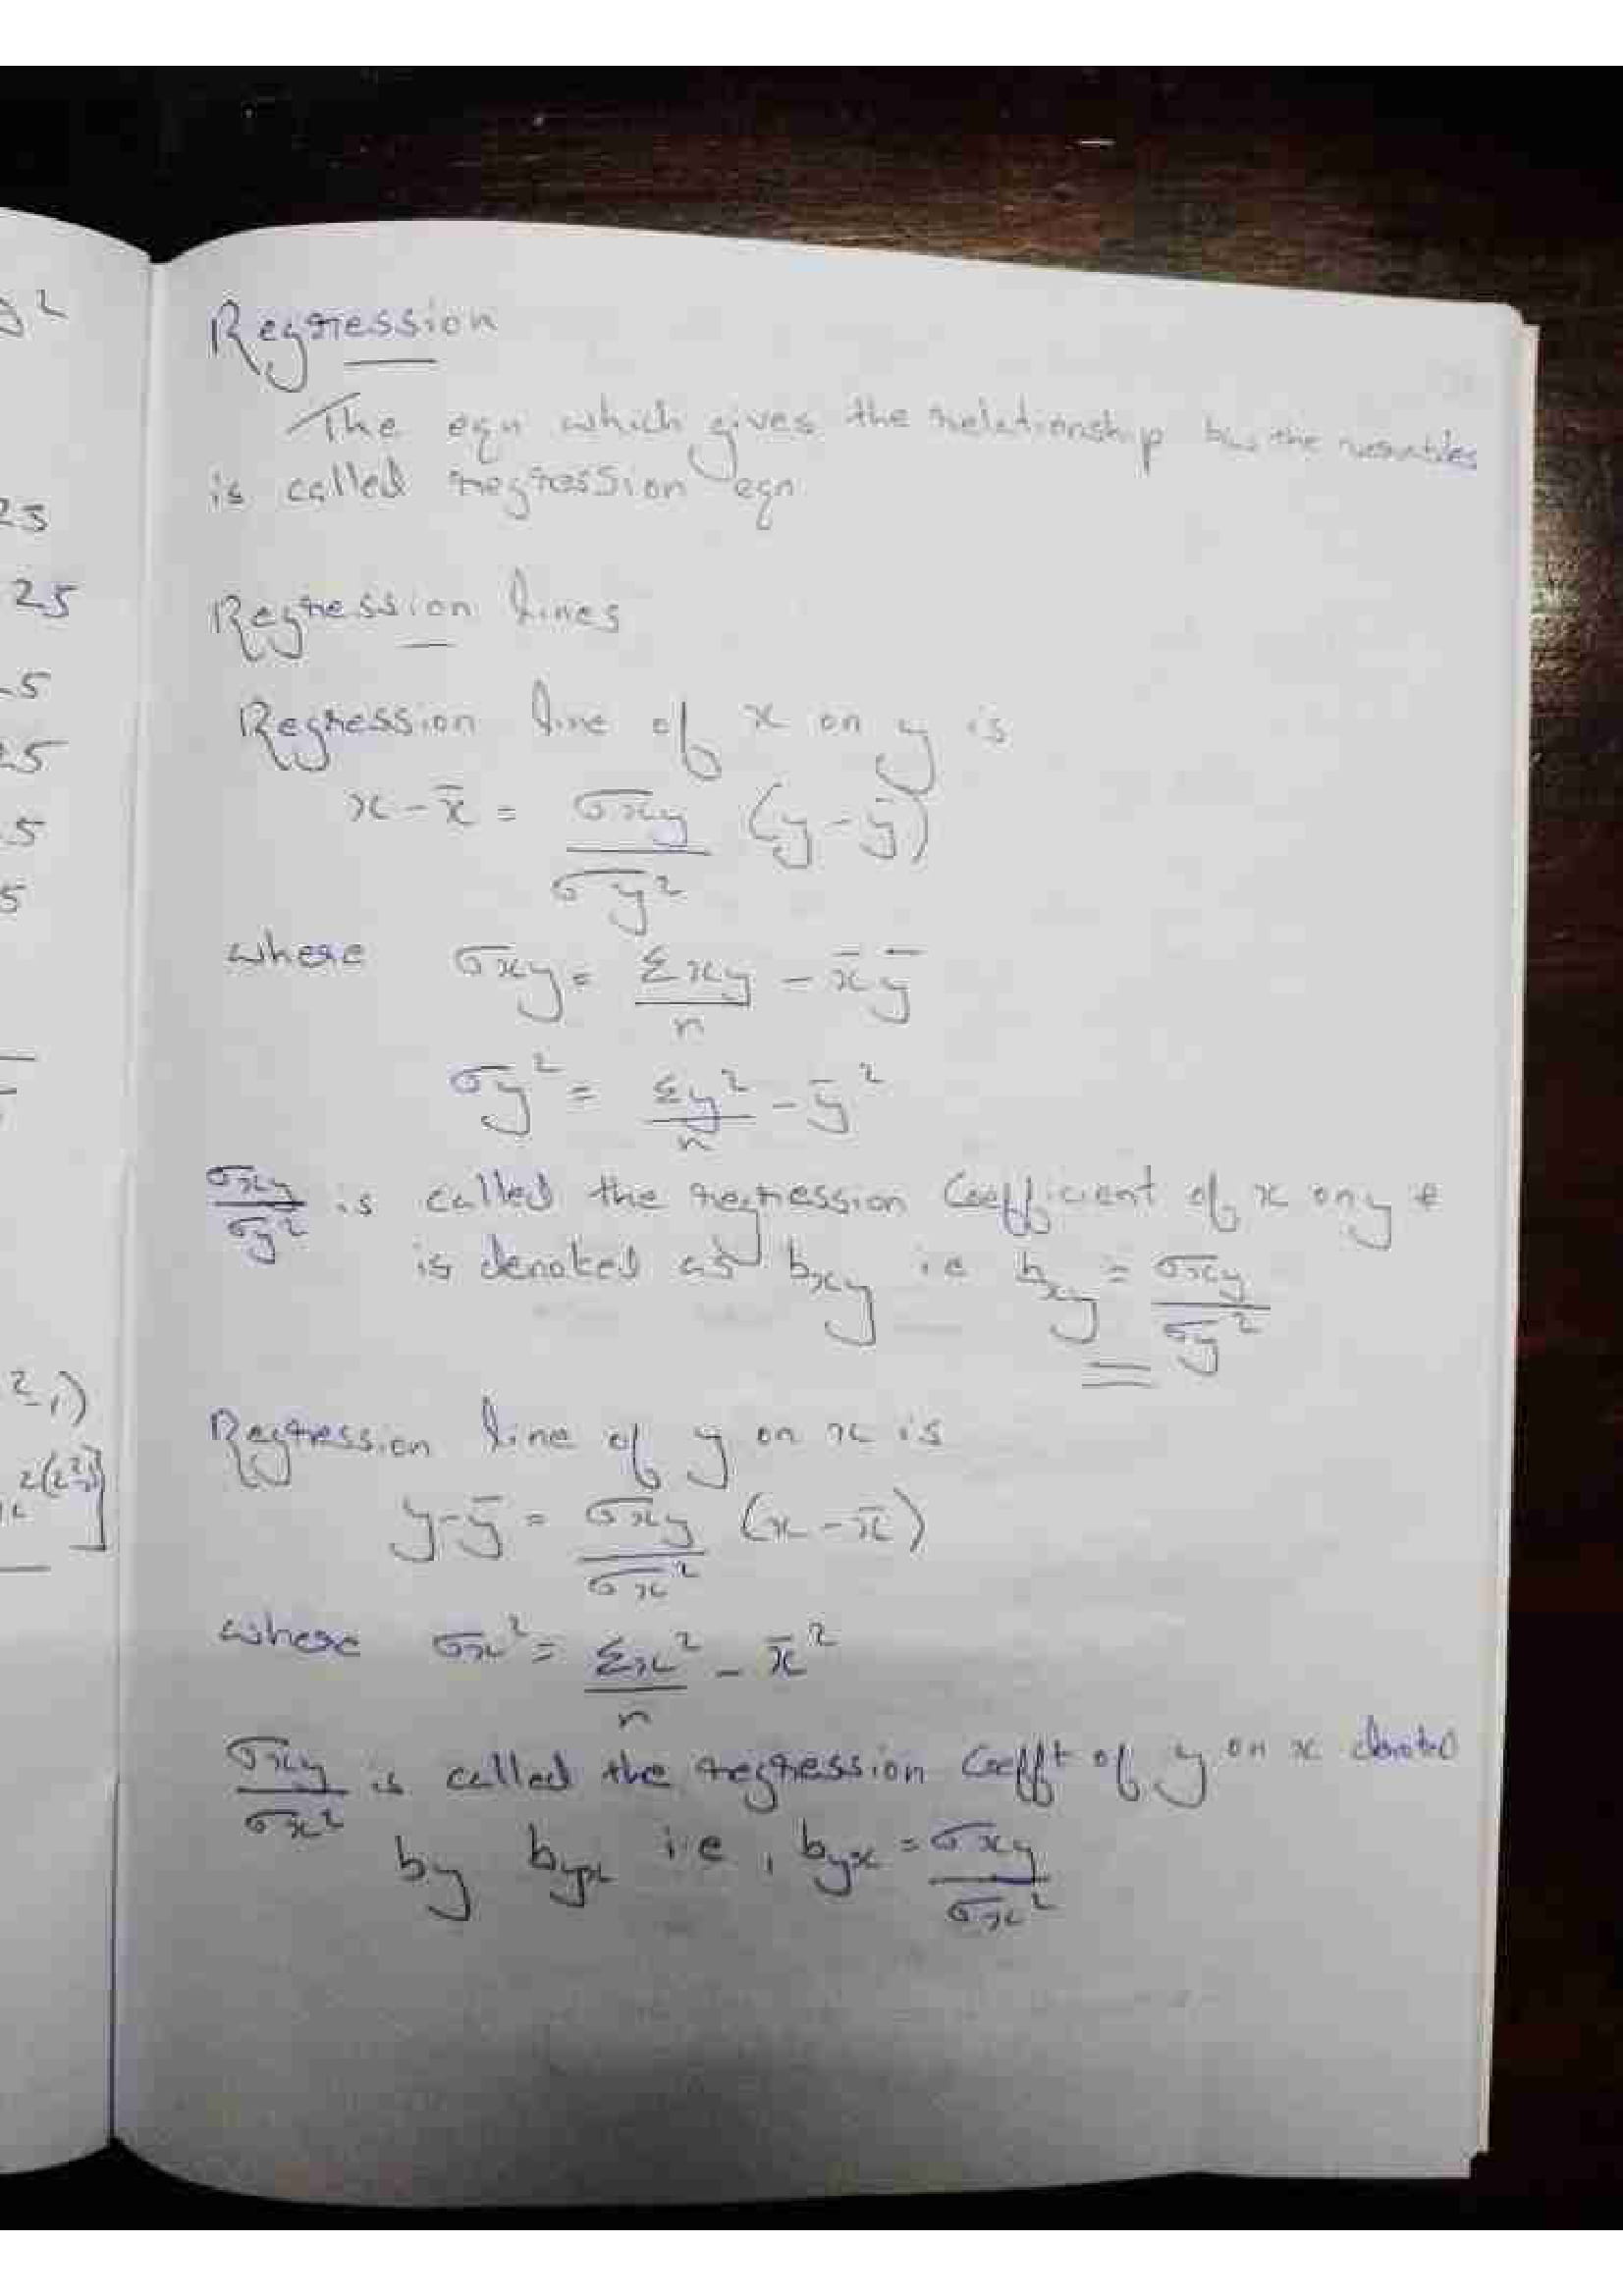 Regression
The eqn which gives the relationship b/w the variables
is called regression eqn
Regression lines
Regression line of x on y is
x - x̄ = σxy / σy² (y - ȳ)
where σxy = Σxy / n - x̄ ȳ
σy² = Σy² / n - ȳ²
σxy / σy² is called the regression Coefficient of x on y &
is denoted as bxy ie bxy = σxy / σy²
Regression line of y on x is
y - ȳ = σxy / σx² (x - x̄)
where σx² = Σx² / n - x̄²
σxy / σx² is called the regression Coefft of y on x denoted
by byx i.e, byx = σxy / σx²